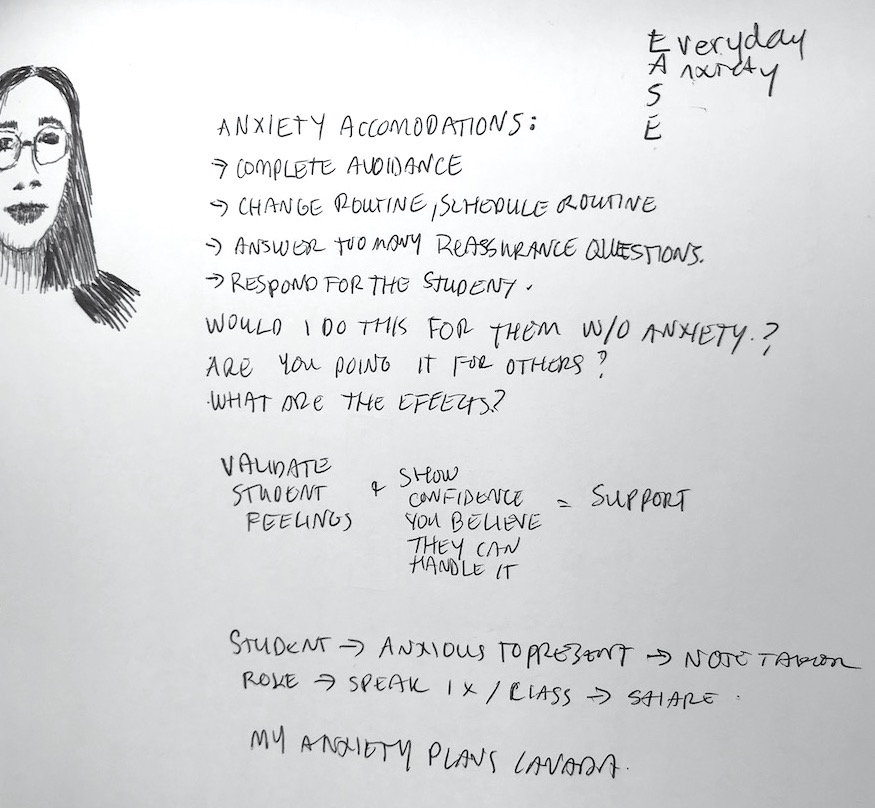 Everyday
Anxiety
S
E
ANXIETY ACCOMODATIONS:
→ COMPLETE AVOIDANCE
→ CHANGE ROUTINE, SCHEDULE ROUTINE
→ ANSWER TOO MANY REASSURANCE QUESTIONS.
→ RESPOND FOR THE STUDENT.
WOULD I DO THIS FOR THEM W/O ANXIETY.?
ARE YOU DOING IT FOR OTHERS?
WHAT ARE THE EFFECTS?
VALIDATE
STUDENT
FEELINGS
+ SHOW
CONFIDENCE
YOU BELIEVE
THEY CAN
HANDLE IT
= SUPPORT
STUDENT → ANXIOUS TO PRESENT → NOTE TAKER
ROLE → SPEAK 1X/CLASS → SHARE.
MY ANXIETY PLANS CANADA.